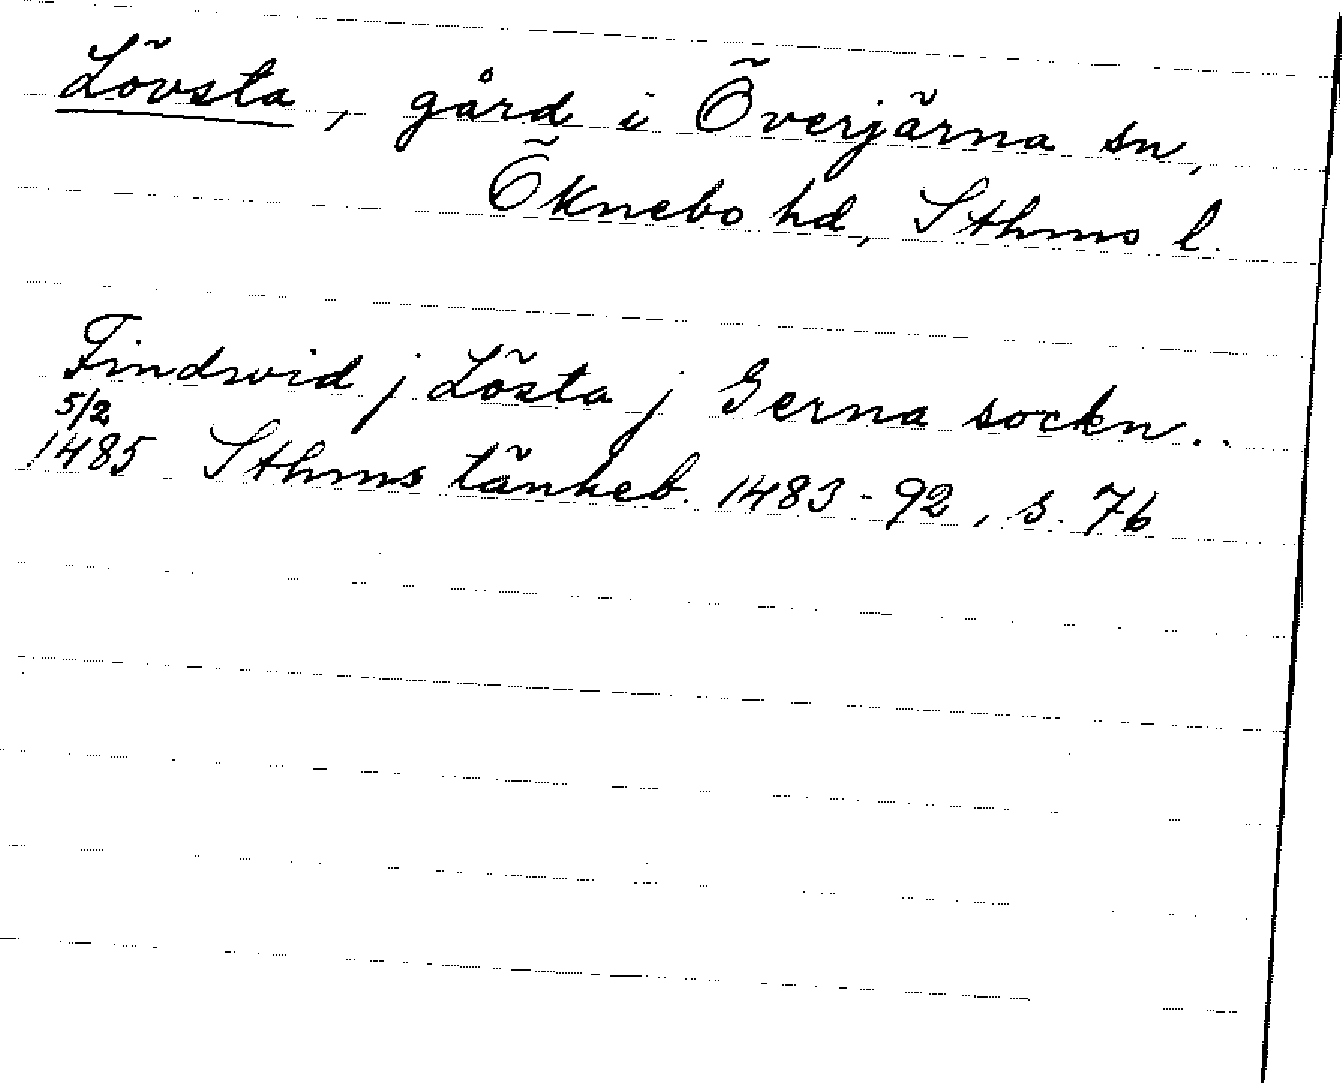 Lövsta, gård i Överjärna sn,
Öknebo hd, Sthms l.
Findwid j Lösta j Gerna sockn..
5/2
1485 Sthms tänkeb. 1483-92, s. 76